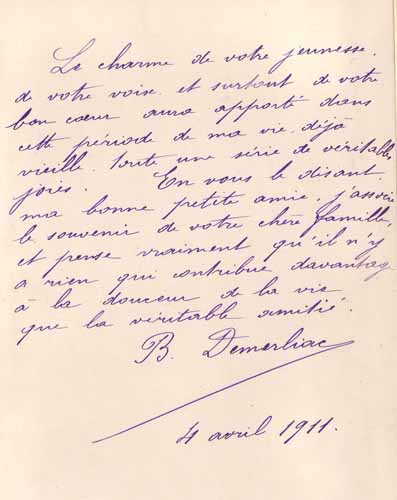 Le charme de votre jeunesse.
de votre voix. et surtout de votre
bon cœur aura apporté dans
cette période de ma vie, déjà
vieille, toute une série de véritables
joies. En vous le disant.
ma bonne petite amie, j'associe
le souvenir de votre chère famille,
et pense vraiment qu'il n'y
a rien qui contribue davantage
à la douceur de la vie
que la véritable amitié.
B. Demerliac
4 avril 1911.